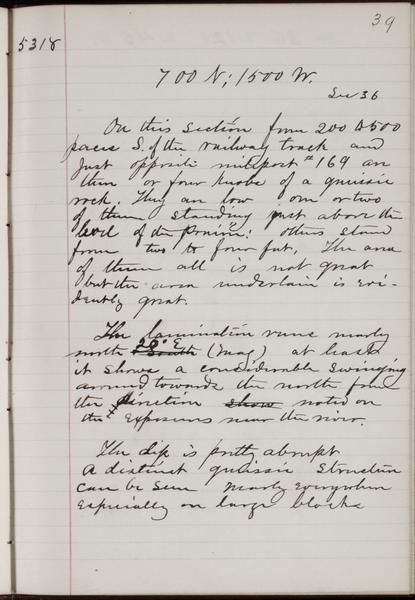 39
5318
700 N; 1500 W.
Sec 36
On this section from 200 to 500
paces S. of the railway track and
Just opposite milepost # 169 are
three or four knobs of a gneissic
rock. They are low one or two
of them standing just above the
level of the Prairie: others stand
from two to four feet. The area
of them all is not great
but the area underlain is evi-
dently great.
The lamination runs nearly
north 20° E. South (Mag) at least
it shows a considerable swinging
around towards the north from
the direction show noted on
the exposures near the river.
The dip is pretty abrupt
A distinct gneissic structure
can be seen nearly everywhere
Especially on large blocks